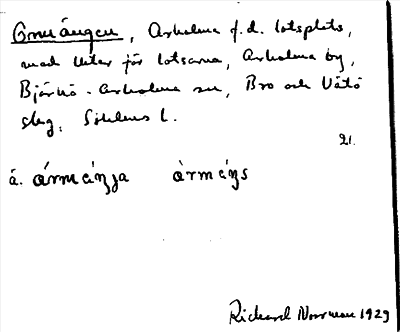 Ormängen, Arholma f.d. lotsplats,
med utkik för lotsarna, Arholma by,
Björkö-Arholma sn, Bro och Vätö
slg, Sthlms l.
21.
å. ármæ̀ŋa àrmæ̀ŋs
Richard Norrman 1929